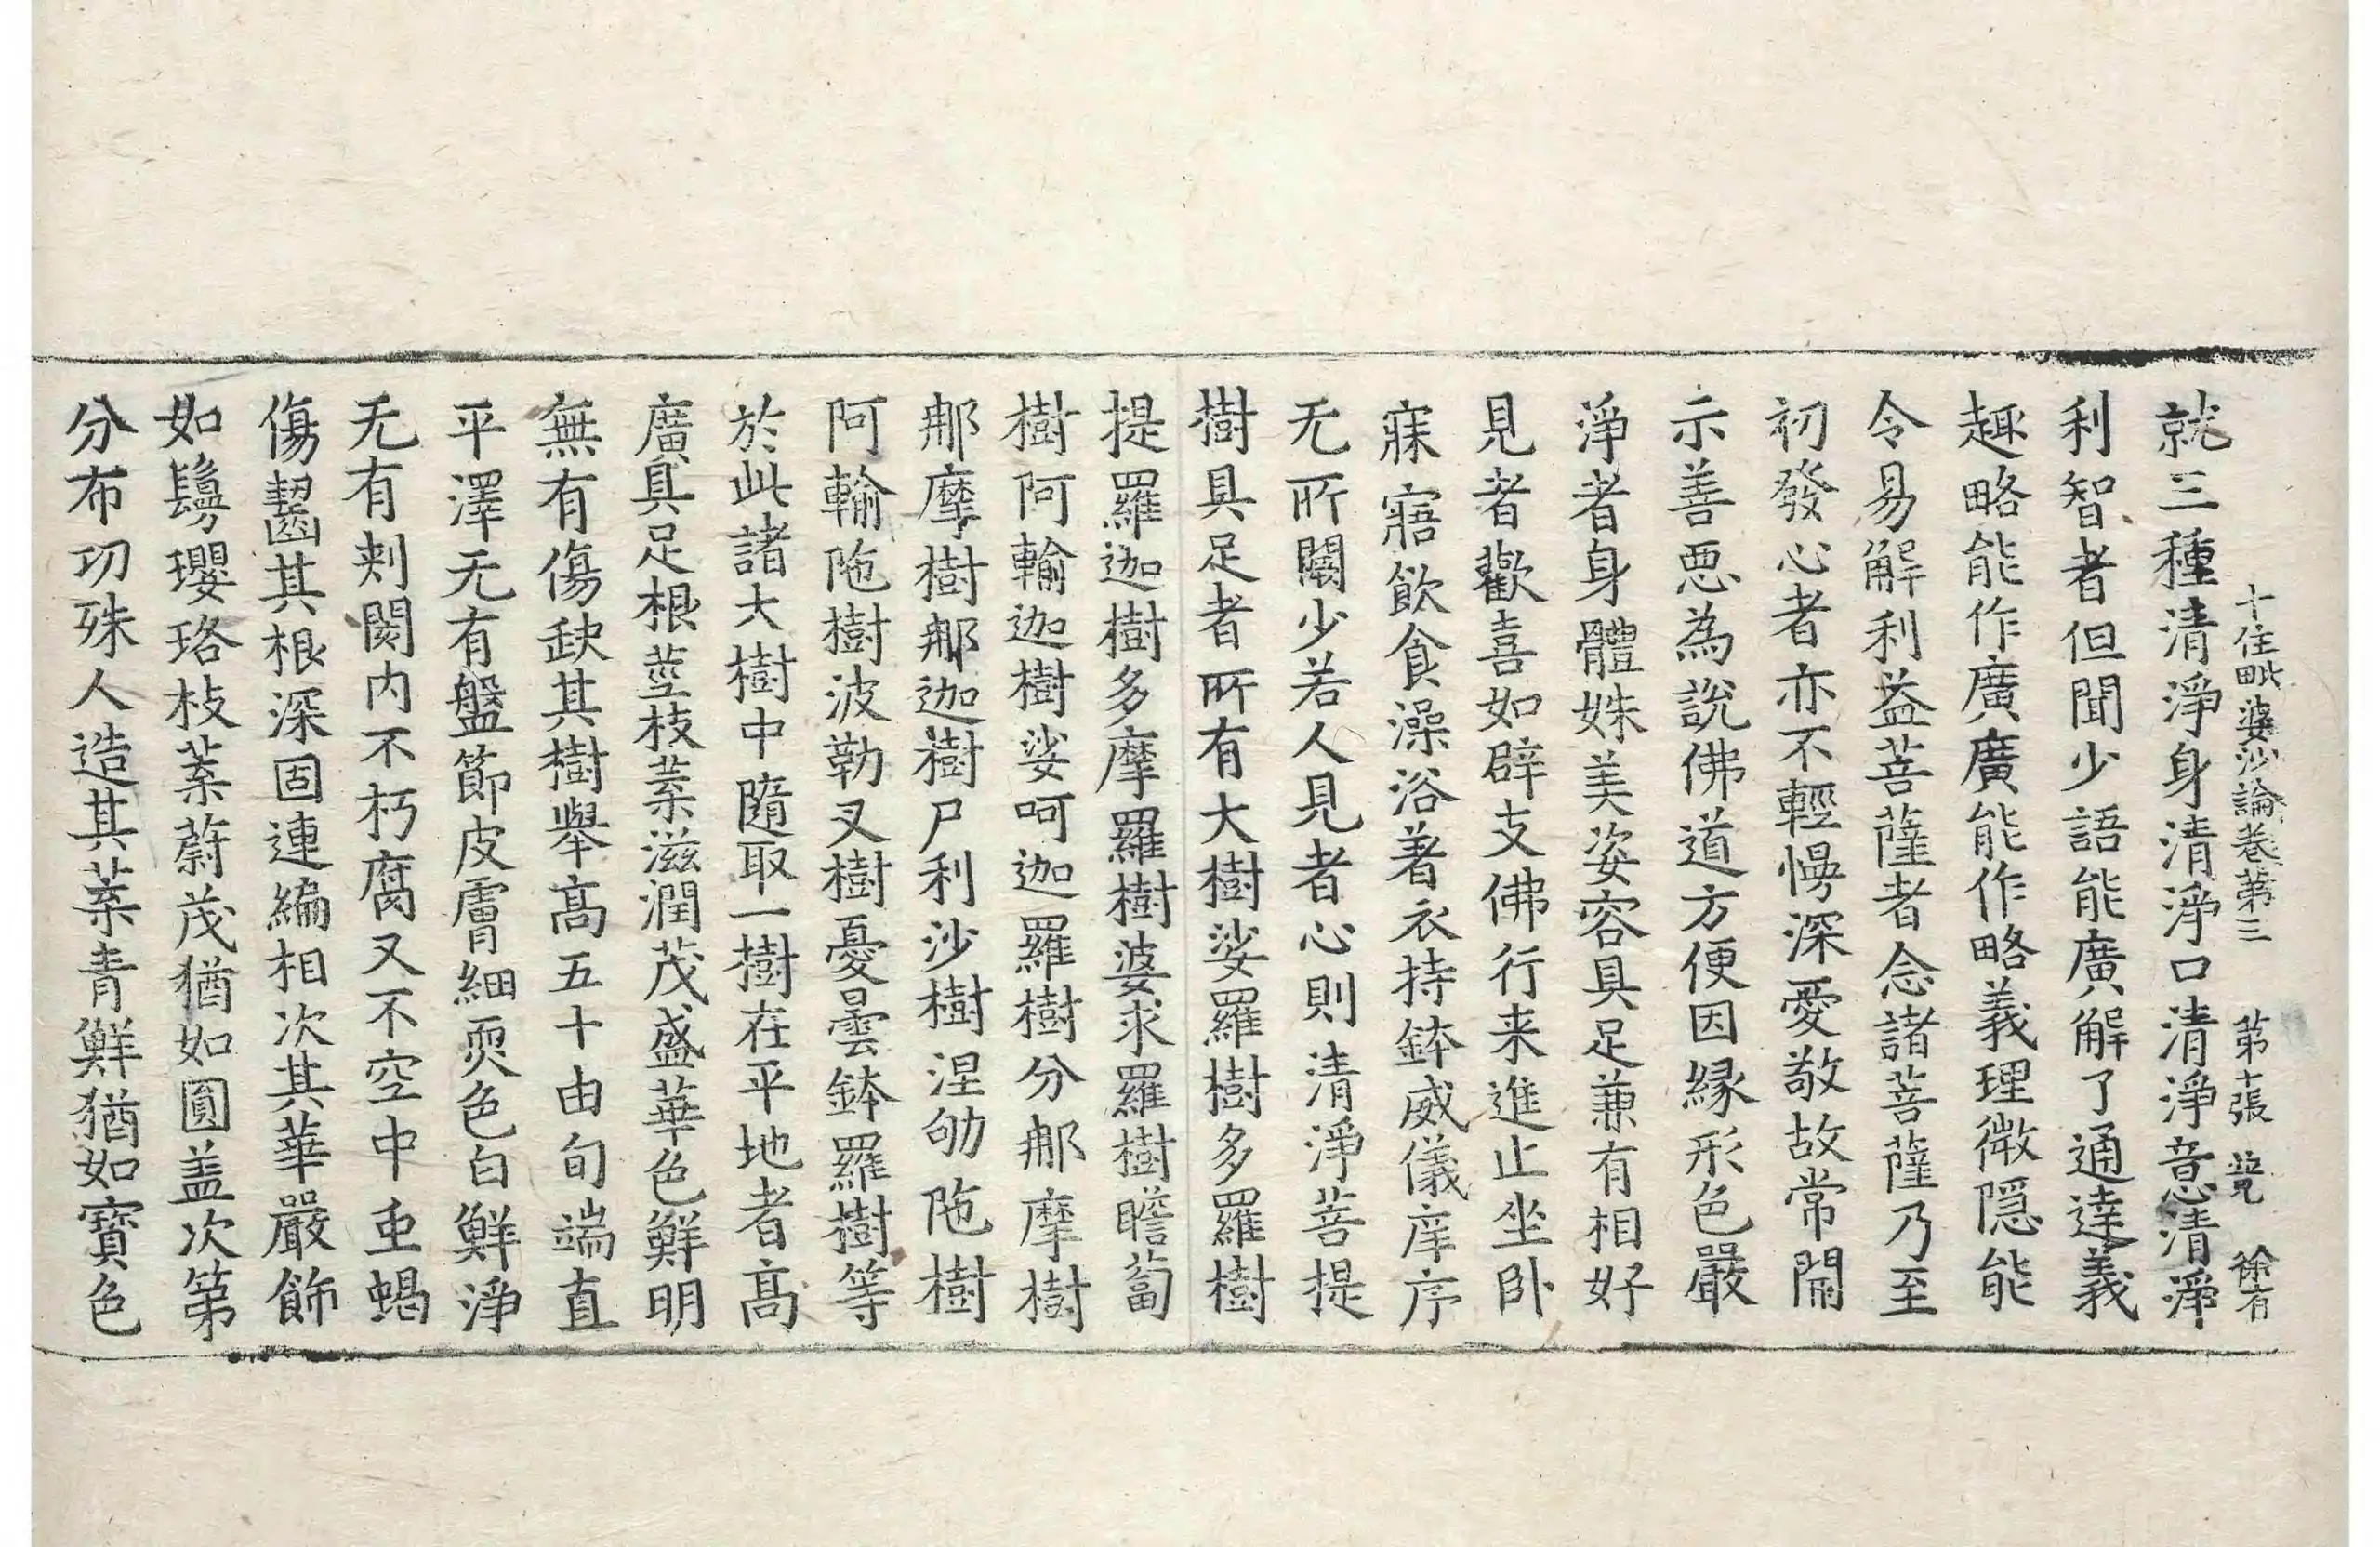 十住毗婆沙論卷第三　第十張　覽　徐有
就三種清淨身清淨口清淨意清淨
利智者但聞少語能廣解了通達義
趣略能作廣廣能作略義理微隱能
令易解利益菩薩者念諸菩薩乃至
初發心者亦不輕慢深愛敬故常開
示善惡為說佛道方便因緣形色嚴
淨者身體姝美姿容具足兼有相好
見者歡喜如辟支佛行来進止坐卧
寐寤飲食澡浴著衣持鉢威儀庠序
无所闕少若人見者心則清淨菩提
樹具足者所有大樹娑羅樹多羅樹
提羅迦樹多摩羅樹婆求羅樹瞻蔔
樹阿輸迦樹娑呵迦羅樹分那摩樹
那摩樹那迦樹尸利沙樹涅劬陁樹
阿輸陁樹波勒叉樹憂曇鉢羅樹等
於此諸大樹中隨取一樹在平地者高
廣具足根莖枝葉滋潤茂盛華色鮮明
無有傷缺其樹舉高五十由旬端直
平澤无有盤節皮膚細耎色白鮮淨
无有刺閡内不朽腐又不空中虫蝎
傷齧其根深固連編相次其華嚴飾
如鬘瓔珞枝葉蔚茂猶如圓盖次第
分布功殊人造其葉青鮮猶如寶色